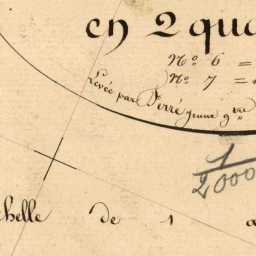 en 2 qua
N.o 6 =
N.o 7 =
Levée par Ferré jeune g.tre
1/2000
chelle de 1 a